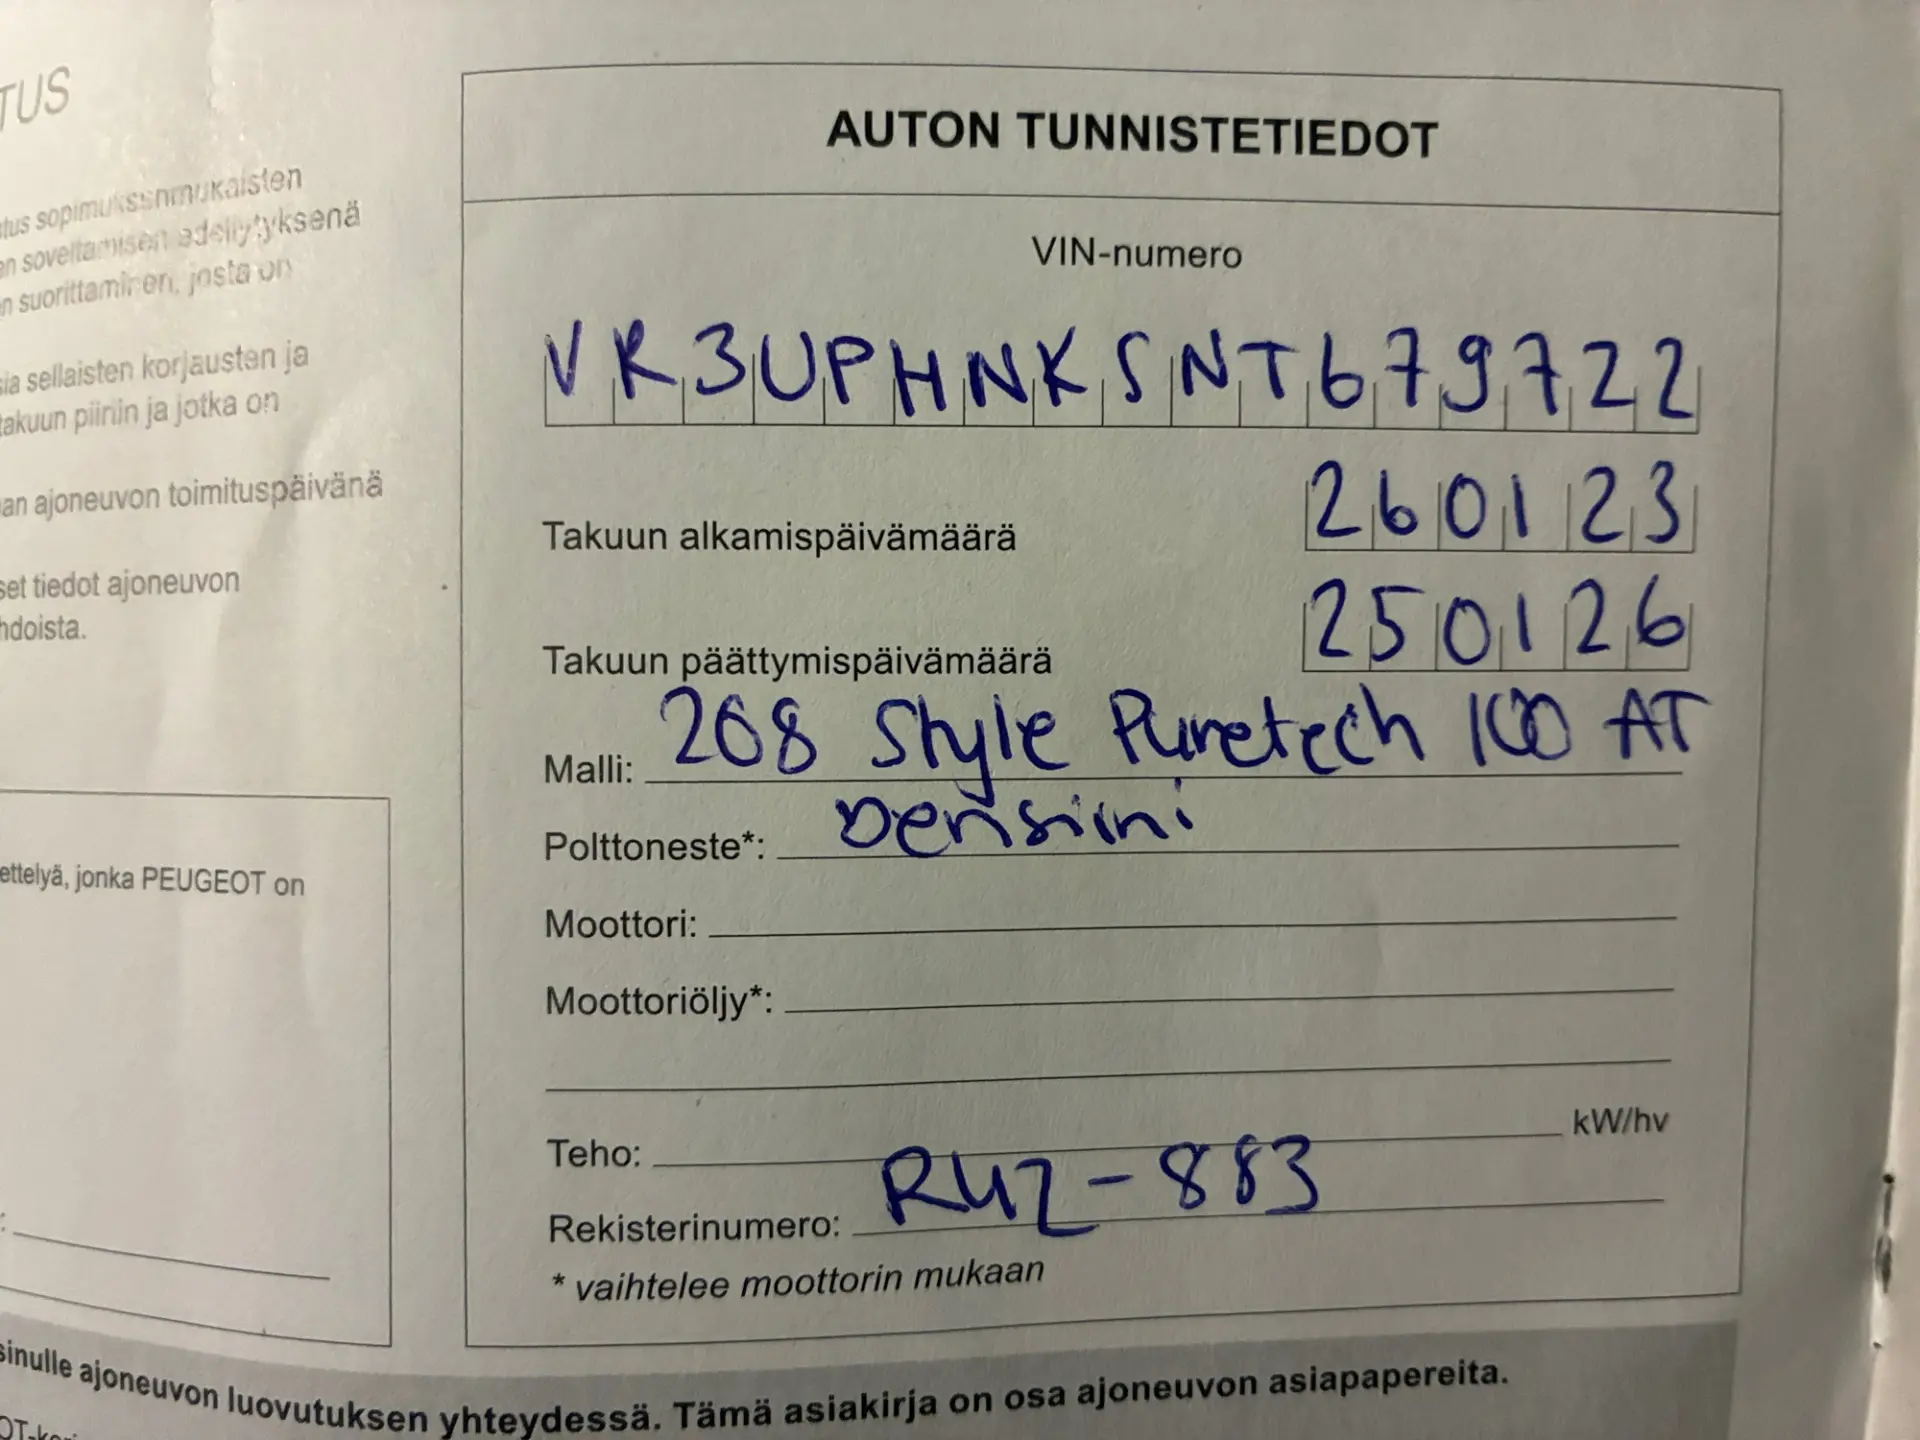 TUS
tus sopimuksenmukaisten
en soveltamisen edellytyksenä
n suorittaminen, josta on
sia sellaisten korjausten ja
takuun piiriin ja jotka on
an ajoneuvon toimituspäivänä
set tiedot ajoneuvon
hdoista.
ettelyä, jonka PEUGEOT on
AUTON TUNNISTETIEDOT
VIN-numero
VR3UPHNKSNT679722
Takuun alkamispäivämäärä 260123
Takuun päättymispäivämäärä 250126
Malli: 208 Style Puretech 100 AT
Polttoneste*: bensiini
Moottori:
Moottoriöljy*:
Teho: kW/hv
Rekisterinumero: RUZ-883
* vaihtelee moottorin mukaan
sinulle ajoneuvon luovutuksen yhteydessä. Tämä asiakirja on osa ajoneuvon asiapapereita.